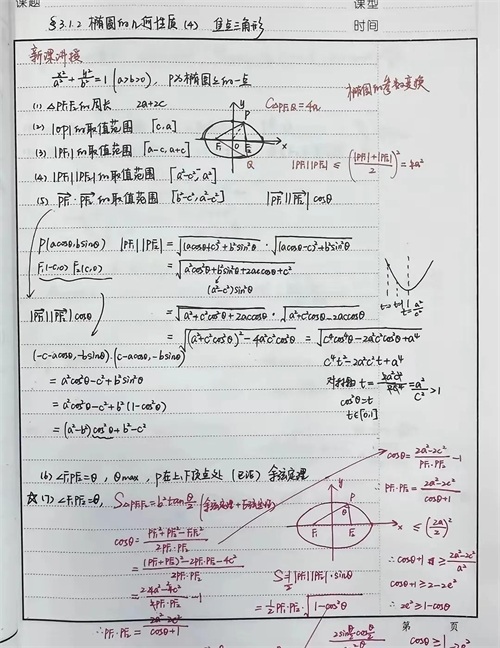 课题
课型
§3.1.2 椭圆的几何性质 (4) 焦点三角形
时间
新课讲授
x²/a² + y²/b² = 1 (a>b>0), P为椭圆上的一点
椭圆的参数变换
(1) △PF₁F₂的周长 2a+2c
C△PF₁Q = 4a
(2) |OP|的取值范围 [b,a]
(3) |PF₁|的取值范围 [a-c, a+c]
|PF₁||PF₂| ≤ ((|PF₁|+|PF₂|)/2)²
(4) |PF₁||PF₂|的取值范围 [a²-c², a²]
(5) PF₁·PF₂的取值范围 [b²-c², a²-c²] |PF₁||PF₂|cosθ
P(acosθ, bsinθ) |PF₁||PF₂| = √((acosθ+c)²+b²sin²θ) · √((acosθ-c)²+b²sin²θ)
F₁(-c,0) F₂(c,0) = √(a²cos²θ+b²sin²θ+2accosθ+c²)
(a²-c²)sin²θ
|PF₁||PF₂|cosθ = √(a²+c²cos²θ+2accosθ) · √(a²+c²cos²θ-2accosθ)
= √((a²+c²cos²θ)²-4a²c²cos²θ) = √(c⁴cos⁴θ-2a²c²cos²θ+a⁴)
(-c-acosθ, -bsinθ)·(c-acosθ, -bsinθ)
c⁴t²-2a²c²t+a⁴
= a²cos²θ-c²+b²sin²θ
对称轴 t= = a²/c² >1
= a²cos²θ-c²+b²(1-cos²θ)
cos²θ=t
t∈[0,1]
= (a²-b²)cos²θ+b²-c²
(6) ∠F₁PF₂=θ, θmax, P在上、下顶点处 余弦定理
cosθ = (2a²-2c²)/(PF₁·PF₂) - 1
(7) ∠F₁PF₂=θ, S△PF₁F₂ = b²tan θ/2
PF₁·PF₂ = (2a²-2c²)/(cosθ+1)
cosθ = (PF₁²+PF₂²-F₁F₂²)/(2PF₁·PF₂)
≤ (2a/2)²
= ((PF₁+PF₂)²-2PF₁·PF₂-4c²)/(2PF₁·PF₂)
S=½|PF₁||PF₂|·sinθ
∴ cosθ+1 ≥ (2a²-2c²)/a²
cosθ+1≥2-2e²
= ½PF₁·PF₂·√(1-cos²θ)
∴ 2e²≥1-cosθ
∴ PF₁·PF₂ = (2a²-2c²)/(cosθ+1)
第 页